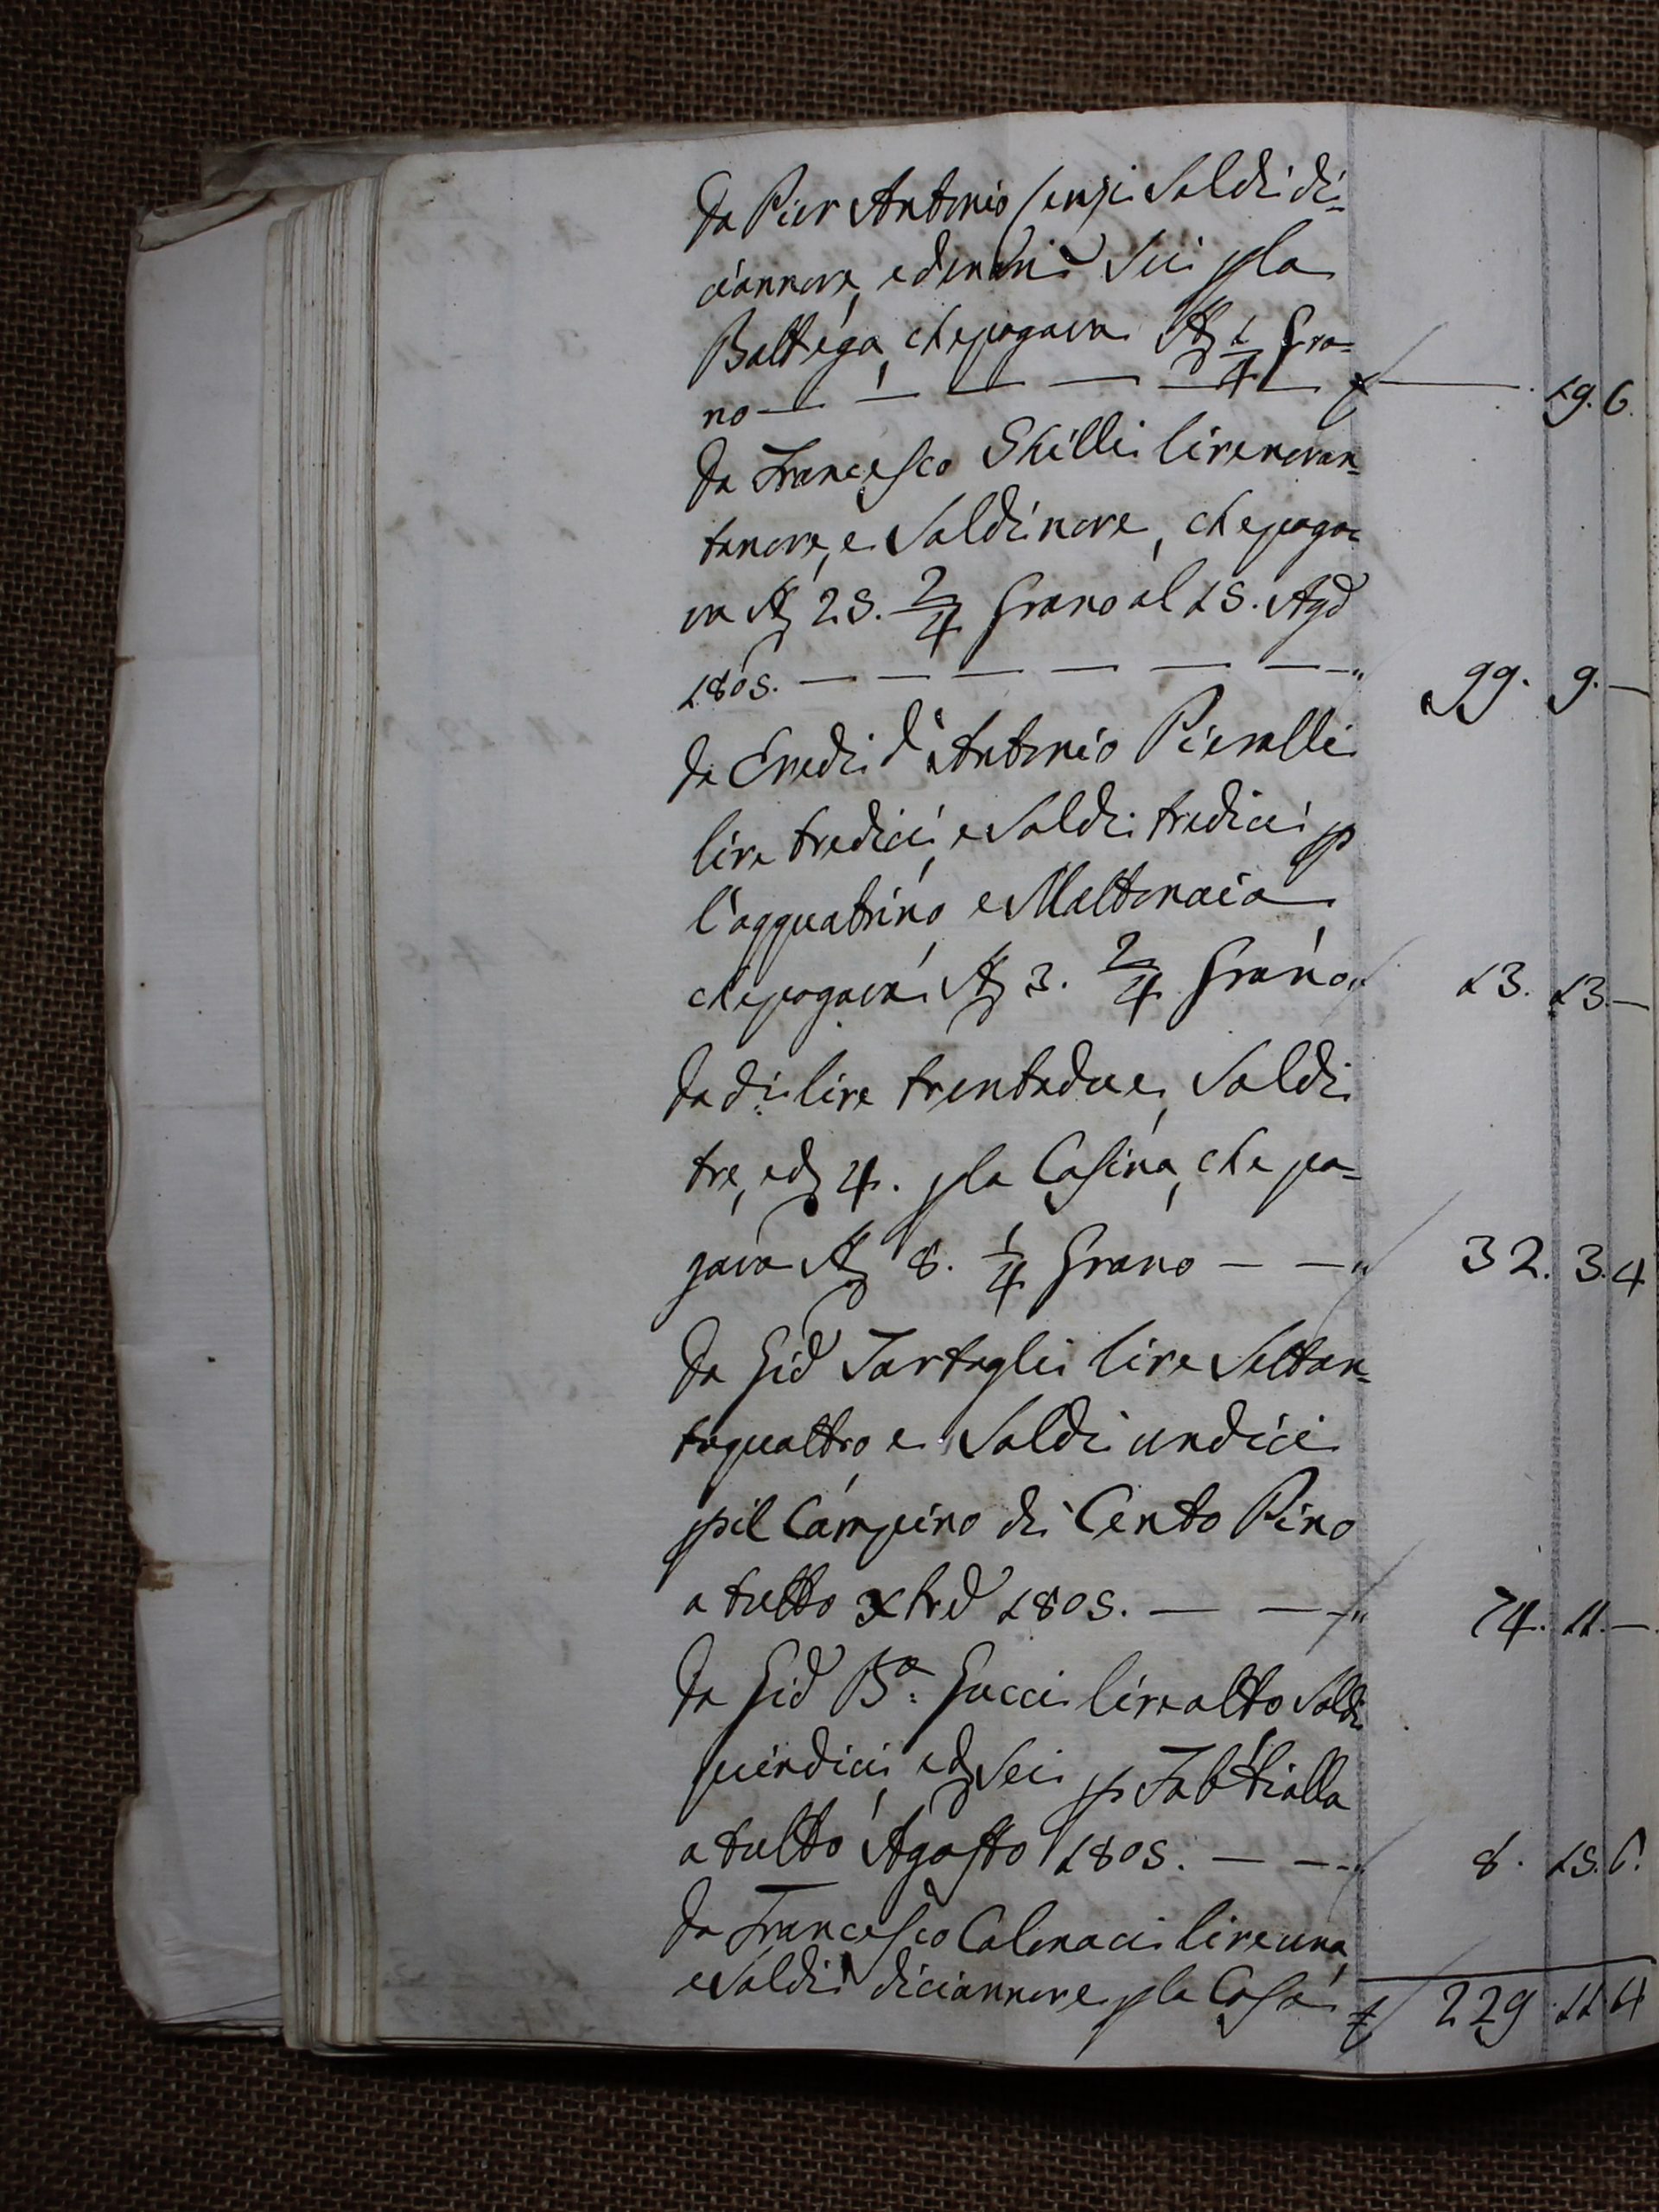 Da Pier Antonio Cenzi Soldi di-
ciannove, e denari Sei p la
Bottega, che pagava St 1/4 Gra-
no — — — — — £ — . 19. 6.
Da Francesco Shilli lire novan-
tanove, e Soldi nove, che paga-
va St 25. 2/4 Grano al 15. Agō
1805. — — — — — — " 99. 9. —
Da Eredi d'Antonio Pieralli
lire tredici, e Soldi tredici p
l'agguatrino, e Mattonaia,
che pagava St 3. 2/4 Grano " 13. 13. —
Da di lire trentadue, Soldi
tre, e d 4. p la Casina, che pa-
gava St 8. 1/4 Grano — — " 32. 3. 4
Da Gio Tartagli lire Settan-
taquattro e Soldi undici
p il Campino di Cento Pino
a tutto Xbre 1805. — — " 74. 11. —
Da Gio Ba. Gucci lire otto Soldi
quindici, e d Sei p
a tutto Agosto 1805. — — " 8. 15. 6.
Da Francesco Colonaci lire una,
e Soldi diciannove p la Casa £ 229. 11. 4